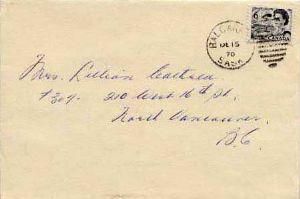 BALCARRES
DE 15
70
SASK
6
CANADA
Mrs. Lillian
#309 - 210 West 16th St.
North Vancouver
B.C.